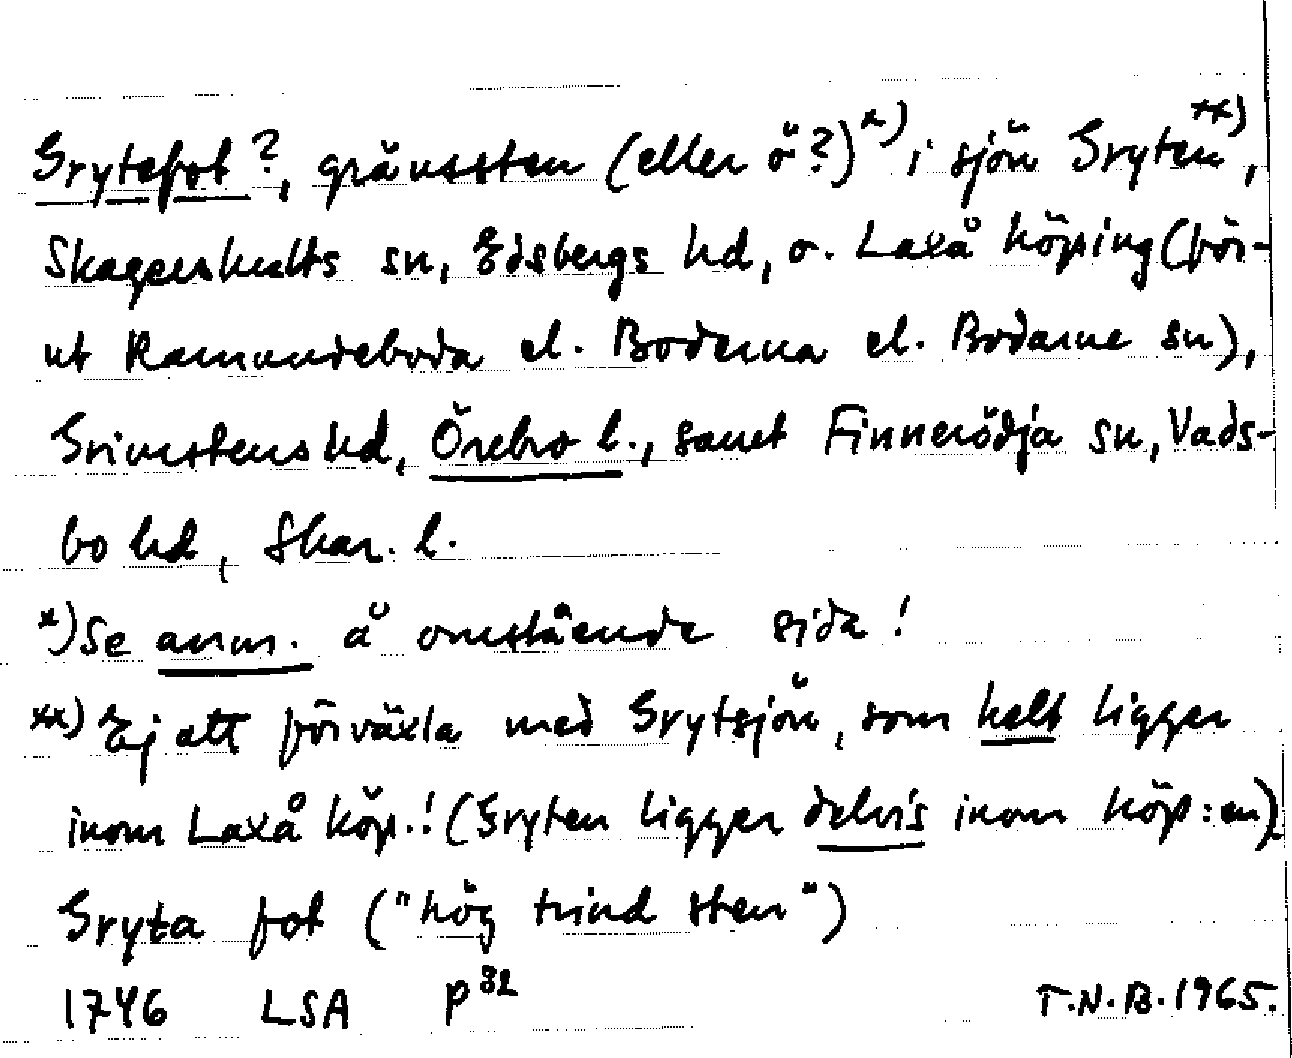 Grytefot?, gränssten (eller ö?)x) i sjön Grytenxx),
Skagershults sn, Edsbergs hd, o. Laxå köping (för-
ut Ramundeboda el. Boderna el. Bodarne sn),
Grimstens hd, Örebro l., samt Finnerödja sn, Vads-
bo hd, Skar. l.
x) Se anm. å omstående sida!
xx) Ej att förväxla med Grytsjön, som helt ligger
inom Laxå köp.! (Gryten ligger delvis inom köp:en).
Gryta fot ("hög trind sten")
1746 LSA P32 T.N.B. 1965.